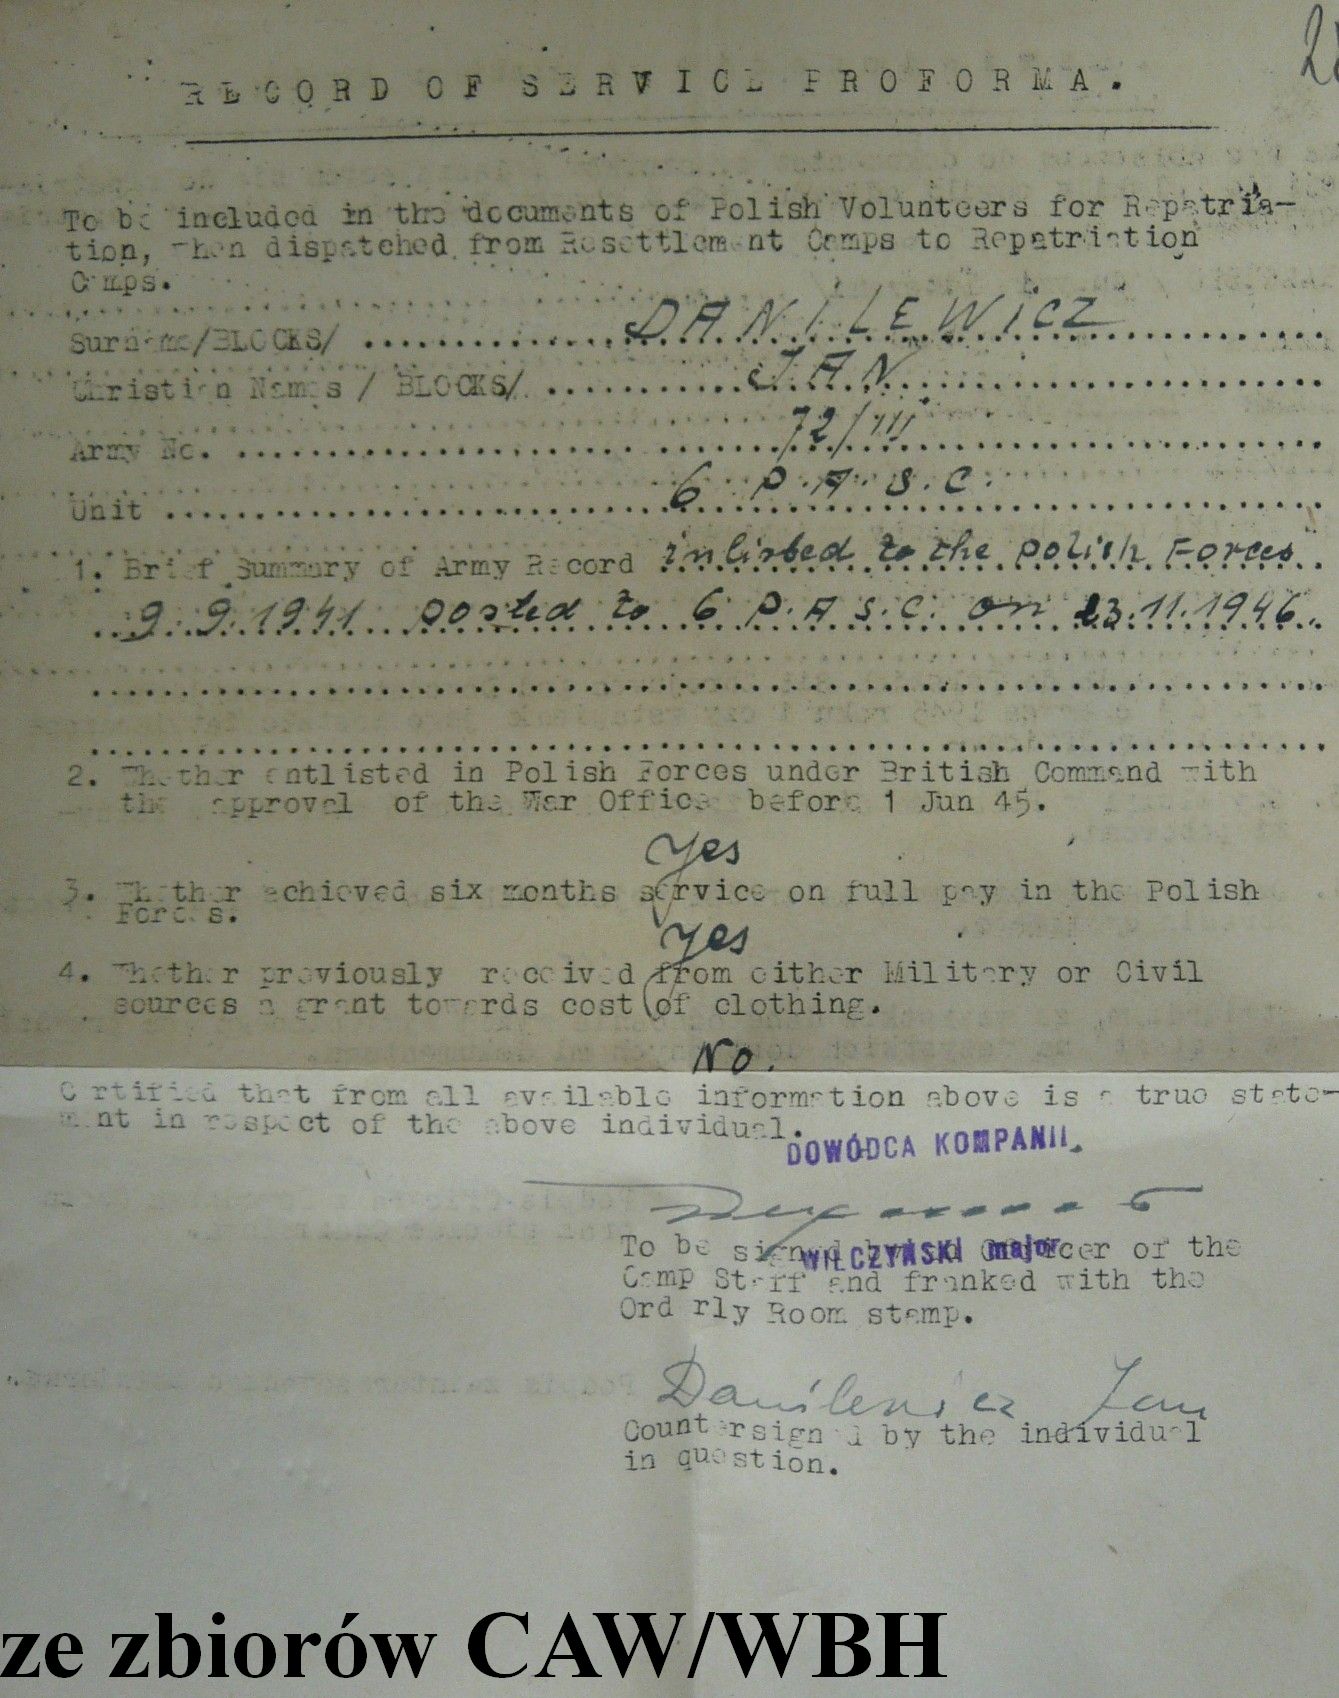 RECORD OF SERVICE PROFORMA.
To be included in the documents of Polish Volunteers for Repatria-
tion, when dispatched from Resettlement Camps to Repatriation
Camps.
Surname/BLOCKS/ DANILEWICZ
Christian Names / BLOCKS/ JAN
Army No. 72/III
Unit 6 P.A.S.C.
1. Brief Summary of Army Record inlisted to the Polish Forces
9.9.1941 posted to 6 P.A.S.C. on 23.11.1946
2. Whether entlisted in Polish Forces under British Command with
the approval of the War Office before 1 Jun 45.
Yes
3. Whether achieved six months service on full pay in the Polish
Forces.
Yes
4. Whether previously received from either Military or Civil
sources a grant towards cost of clothing.
No.
Certified that from all available information above is a true state-
ment in respect of the above individual.
DOWÓDCA KOMPANII.
WILCZYŃSKI major
To be signed by an Officer of the
Camp Staff and franked with the
Orderly Room stamp.
Danilewicz Jan
Countersigned by the individual
in question.
ze zbiorów CAW/WBH